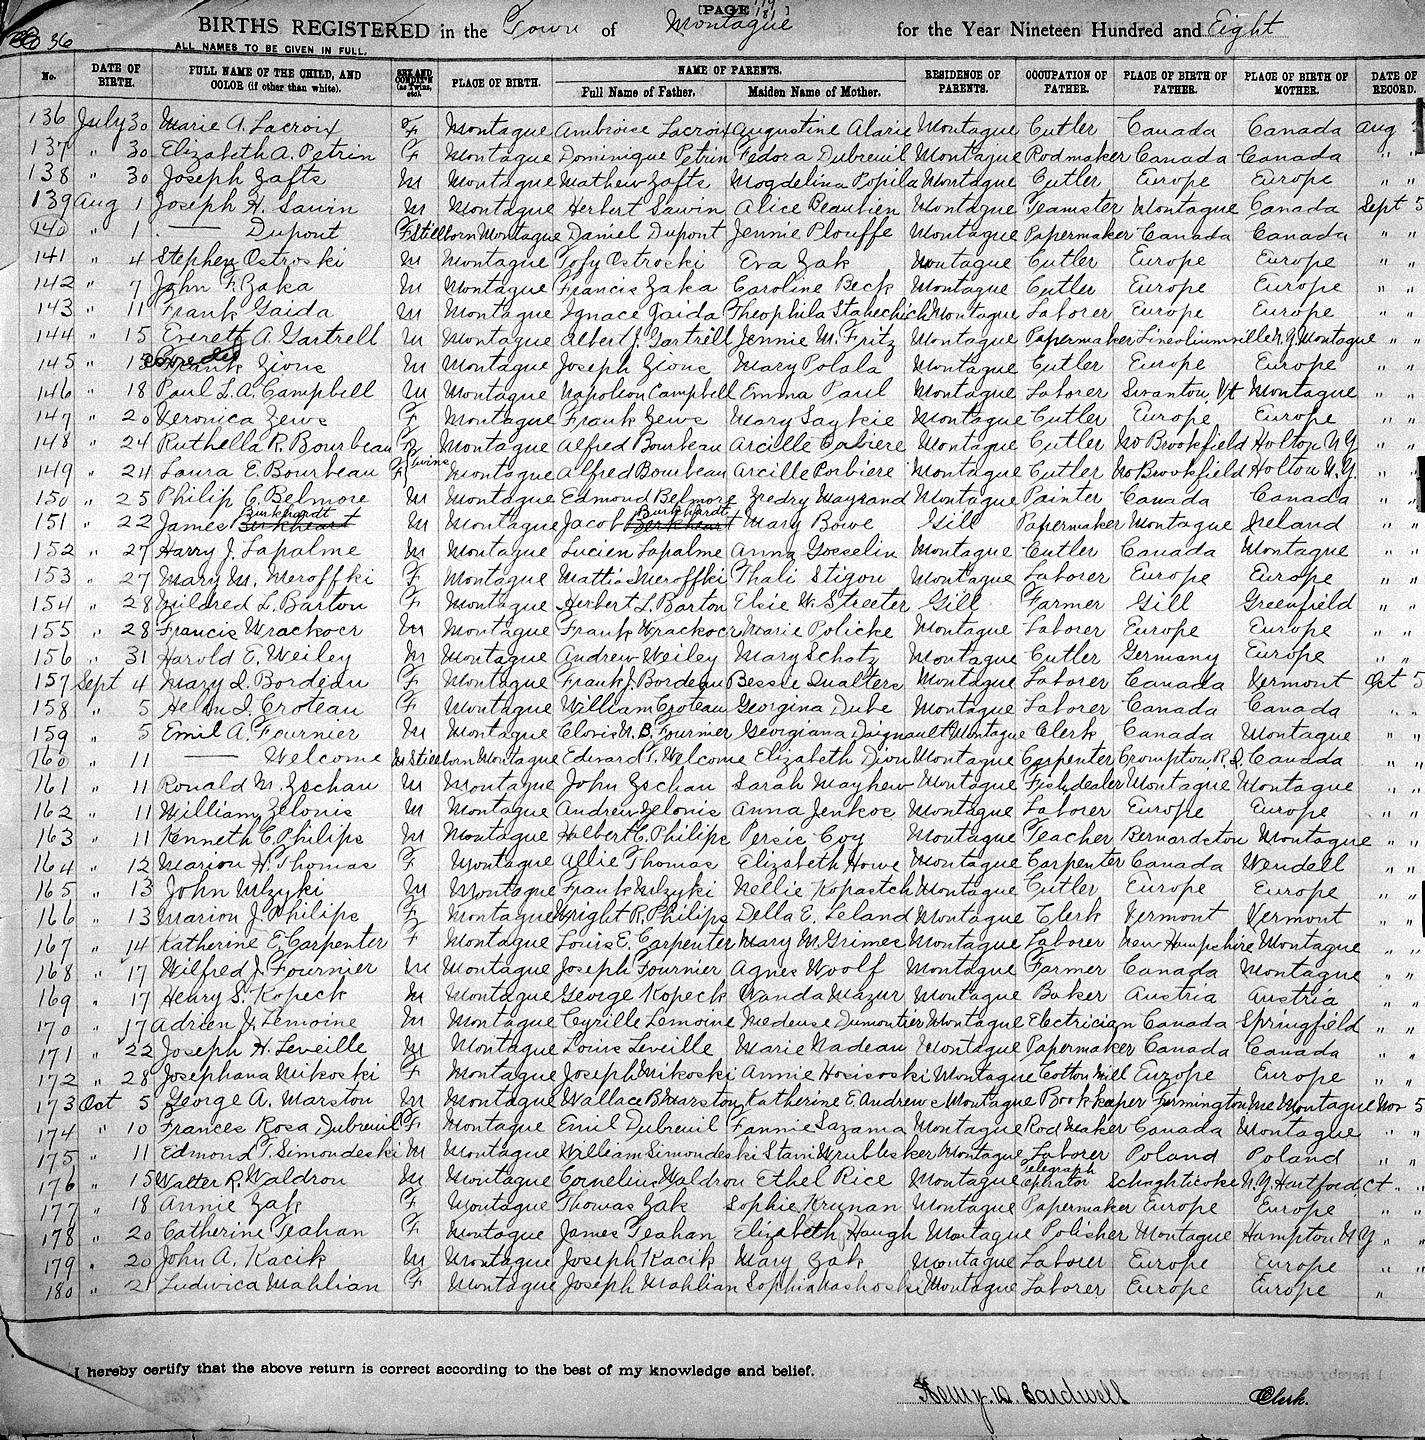 [PAGE 181]
36
BIRTHS REGISTERED in the Town of Montague for the Year Nineteen Hundred and Eight
ALL NAMES TO BE GIVEN IN FULL.
No. DATE OF BIRTH. FULL NAME OF THE CHILD, AND COLOR (if other than white). SEX AND CONDIT'N (as Twins, etc). PLACE OF BIRTH. NAME OF PARENTS. Full Name of Father. Maiden Name of Mother. RESIDENCE OF PARENTS. OCCUPATION OF FATHER. PLACE OF BIRTH OF FATHER. PLACE OF BIRTH OF MOTHER. DATE OF RECORD.
136 July 30 Marie A. Lacroix F Montague Ambroise Lacroix Augustine Alarie Montague Cutler Canada Canada Aug
137 " 30 Elizabeth A. Petrin F Montague Dominique Petrin Fedora Dubreuil Montague Rodmaker Canada Canada " "
138 " 30 Joseph Zafts M Montague Mathew Zafts Mogdelina Popila Montague Cutler Europe Europe " "
139 Aug 1 Joseph H. Sawin M Montague Herbert Sawin Alice Beaubien Montague Teamster Montague Canada Sept 5
140 " 1 —— Dupont F Stillborn Montague Daniel Dupont Jennie Plouffe Montague Papermaker Canada Canada " "
141 " 4 Stephen Ostroski M Montague Tofy Ostroski Eva Zak Montague Cutler Europe Europe " "
142 " 7 John F. Zaka M Montague Francis Zaka Caroline Beck Montague Cutler Europe Europe " "
143 " 11 Frank Gaida M Montague Ignace Gaida Theophila Montague Laborer Europe Europe " "
144 " 15 Everett A. Gartrell M Montague Albert J. Gartrell Jennie M. Fritz Montague Papermaker N.Y. Montague " "
145 " 15 Frank Zions M Montague Joseph Zions Mary Polala Montague Cutler Europe Europe " "
146 " 18 Paul L. A. Campbell M Montague Napoleon Campbell Emma Paul Montague Laborer Swanton, Vt Montague " "
147 " 20 Veronica Zews F Montague Frank Zews Mary Saykie Montague Cutler Europe Europe " "
148 " 24 Ruthella R. Bourbeau F Montague Alfred Bourbeau Arcille Montague Cutler No Brookfield Holton N.Y. " "
149 " 24 Laura E. Bourbeau F Twins Montague Alfred Bourbeau Arcille Corbiere Montague Cutler No Brookfield Holton N.Y. " "
150 " 25 Philip C. Belmore M Montague Edmond Belmore Zredry Mayrand Montague Painter Canada Canada " "
151 " 22 James Burkhardt M Montague Jacob Burkhardt Mary Bowe Gill Papermaker Montague Ireland " "
152 " 27 Harry J. Lapalme M Montague Lucien Lapalme Anna Gosselin Montague Cutler Canada Montague " "
153 " 27 Mary M. Meroffki F Montague Mattias Meroffki Thali Stigou Montague Laborer Europe Europe " "
154 " 28 Mildred L. Barton F Montague Herbert L. Barton Elsie W. Streeter Gill Farmer Gill Greenfield " "
155 " 28 Francis Wrackocr M Montague Frank Wrackocr Marie Policke Montague Laborer Europe Europe " "
156 " 31 Harold E. Weiley M Montague Andrew Weiley Mary Schatz Montague Cutler Germany Europe " "
157 Sept 4 Mary I. Bordeau F Montague Frank J. Bordeau Bessie Qualters Montague Laborer Canada Vermont Oct 5
158 " 5 Helen I. Croteau F Montague William Croteau Georgina Dube Montague Laborer Canada Canada " "
159 " 5 Emil A. Fournier M Montague Clovis N. B. Fournier Georgiana Daignault Montague Clerk Canada Montague " "
160 " 11 —— Welcome M Stillborn Montague Edward T. Welcome Elizabeth Dion Montague Carpenter Crompton R.I. Canada " "
161 " 11 Ronald M. Zschau M Montague John Zschau Sarah Mayhew Montague Fishdealer Montague Montague " "
162 " 11 William Zelonis M Montague Andrew Zelonis Anna Jenkoc Montague Laborer Europe Europe " "
163 " 11 Kenneth C. Philips M Montague Halbert C. Philips Persie Coy Montague Teacher Bernardston Montague " "
164 " 12 Marion H. Thomas F Montague Allie Thomas Elizabeth Howe Montague Carpenter Canada Wendell " "
165 " 13 John Mlzyki M Montague Frank Mlzyki Nellie Kopastch Montague Cutler Europe Europe " "
166 " 13 Marion J. Philips F Montague Wright R. Philips Della E. Leland Montague Clerk Vermont Vermont " "
167 " 14 Katherine E. Carpenter F Montague Louis E. Carpenter Mary M. Grimes Montague Laborer New Hampshire Montague " "
168 " 17 Wilfred J. Fournier M Montague Joseph Fournier Agnes Woolf Montague Farmer Canada Montague " "
169 " 17 Henry S. Kopeck M Montague George Kopeck Wanda Mazur Montague Baker Austria Austria " "
170 " 17 Adrien J. Lemoine M Montague Cyrille Lemoine Medeuse Dumontier Montague Electrician Canada Springfield " "
171 " 22 Joseph H. Leveille M Montague Louis Leveille Marie Nadeau Montague Papermaker Canada Canada " "
172 " 28 Josephana Nikoski F Montague Joseph Nikoski Annie Hosisoski Montague Cotton Mill Europe Europe " "
173 Oct 5 George A. Marston M Montague Wallace B. Marston Katherine E. Andrews Montague Bookkeeper Farmington Me Montague Nov 5
174 " 10 Frances Rosa Dubreuil F Montague Emil Dubreuil Fannie Sazama Montague Rod Maker Canada Montague " "
175 " 11 Edmond T. Simondeski M Montague William Simondeski Stani Wrublesker Montague Laborer Poland Poland " "
176 " 15 Walter R. Waldron M Montague Cornelius Waldron Ethel Rice Montague Telegraph operator Schaghticoke N.Y. Hartford, Ct " "
177 " 18 Annie Zak F Montague Thomas Zak Sophie Krugnan Montague Papermaker Europe Europe " "
178 " 20 Catherine Teahan F Montague James Teahan Elizabeth Haugh Montague Polisher Montague Hampton N.Y. " "
179 " 20 John A. Kacik M Montague Joseph Kacik Mary Zak Montague Laborer Europe Europe " "
180 " 21 Ludwica Mahlian F Montague Joseph Mahlian Sophia Montague Laborer Europe Europe "
I hereby certify that the above return is correct according to the best of my knowledge and belief.
Henry. D. Bardwell Clerk.